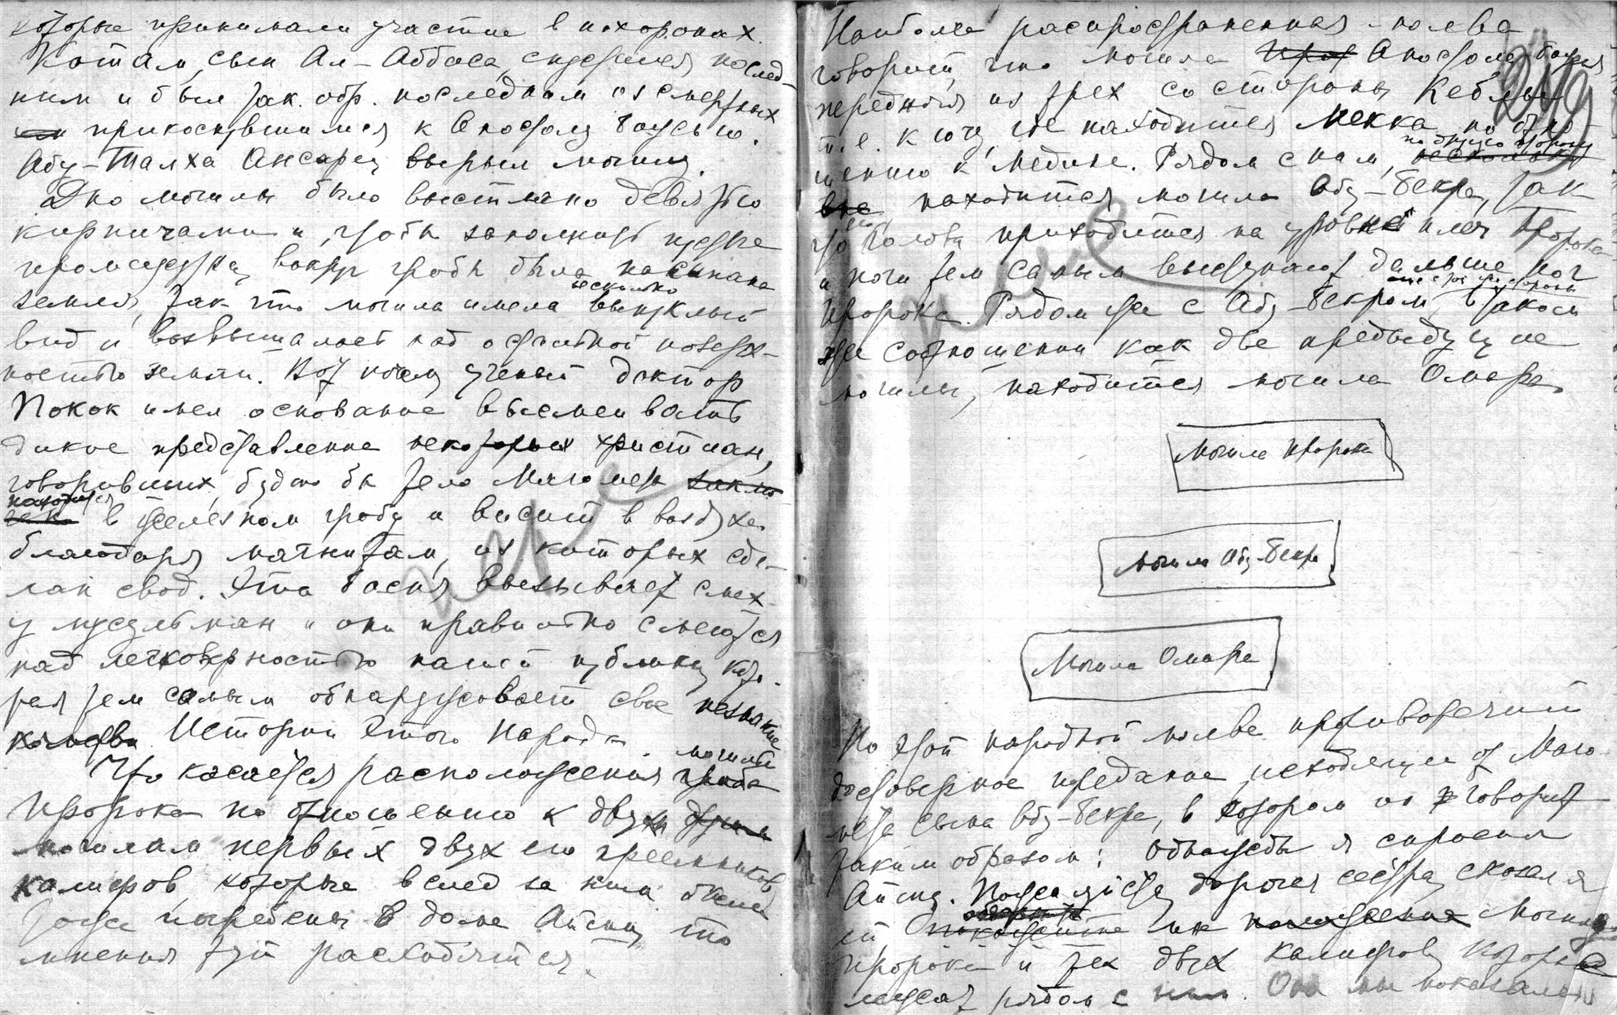 которые принимали участие в похоронах.
Котам, сын Ал-Аббаса, спустился послед-
ним и был так. обр. последним из смертных
прикоснувшимся к Апостолу Божью.
Абу-Талха Ансарец вырыл могилу.
Дно могилы было выстлано девятью
кирпичами и, чтобы заполнить пустые
промежутки, вокруг гроба была насыпана
земля, так что могила имела несколько выпуклый
вид и возвышалась над остальной поверх-
ностью земли. Вот почему ученый доктор
Покок имел основание высмеивать
дикое представление некоторых христиан,
говоривших, будто бы тело Магомета
находится в железном гробу и висит в воздухе
благодаря магнитам, из которых сде-
лан свод. Эта басня вызывает смех
у мусульман и они правильно смеются
над легковерностью нашей публики, кото-
рая тем самым обнаруживает свое незнание
Истории этого Народа.
Что касается расположения могилы
Пророка по отношению к двум
могилам первых двух его преемников
калифов, которые вслед за ним были
тоже погребены в доме Айсии, то
мнения тут расходятся.
Наиболее распространенная молва
говорит, что могила Апостола Божия
передняя из трех со стороны Кеблы
т.е. к югу, где находится Мекка по отно
шению к Медине. Рядом с ним,
находится могила Абу-Бекра, так
что голова приходится на уровне плеч Пророка
и ноги тем самым выступают дальше ног
Пророка. Рядом же с Абу-Бекром, в таком
же соотношении как две предыдущие
могилы, находится могила Омара.
Могила Пророка
Могила Абу-Бекра
Могила Омара
Но этой народной молве противоречит
достоверное предание, исходящее от Маго
мета сына Абу-Бекра, в котором он говорит
таким образом: Однажды я спросил
Айсию. Пожалуйста, дорогая сестра, сказал я
ей мне могилы
Пророка и тех двух калифов, которые
лежат рядом с ним. Она мне показала